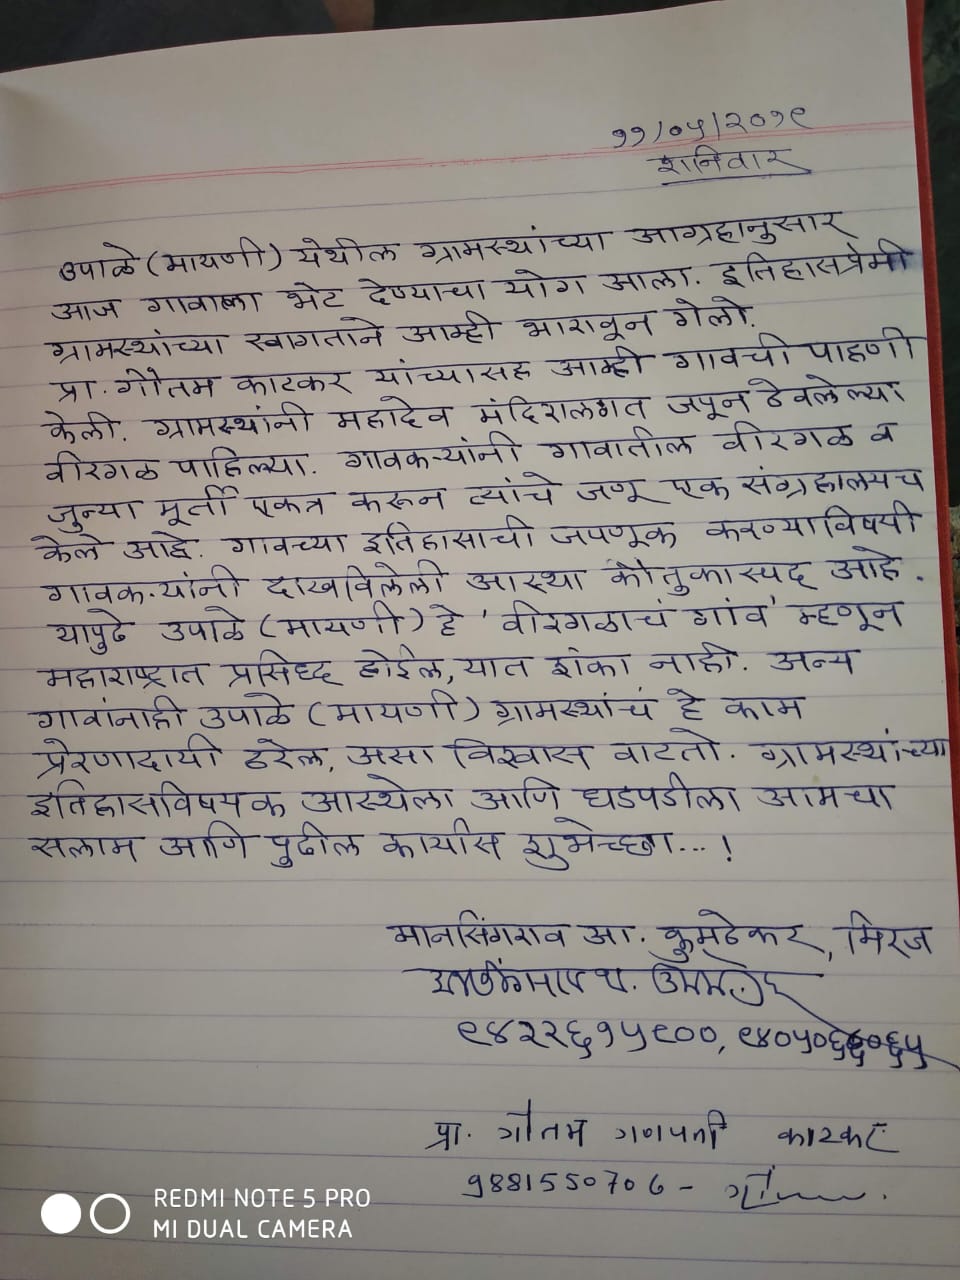 ११/०५/२०१९
शनिवार
उपाळे (मायणी) येथील ग्रामस्थांच्या आग्रहानुसार
आज गावाला भेट देण्याचा योग आला. इतिहासप्रेमी
ग्रामस्थांच्या स्वागताने आम्ही भारावून गेलो.
प्रा. गौतम काटकर यांच्यासह आम्ही गावची पाहणी
केली. ग्रामस्थांनी महादेव मंदिरालगत जपून ठेवलेल्या
वीरगळ पाहिल्या. गावकऱ्यांनी गावातील वीरगळ व
जुन्या मूर्ती एकत्र करून त्यांचे जणू एक संग्रहालयच
केले आहे. गावच्या इतिहासाची जपणूक करण्याविषयी
गावकऱ्यांनी दाखविलेली आस्था कौतुकास्पद आहे.
यापुढे उपाळे (मायणी) हे 'वीरगळाचं गांव' म्हणून
महाराष्ट्रात प्रसिध्द होईल, यात शंका नाही. अन्य
गावांनाही उपाळे (मायणी) ग्रामस्थांचं हे काम
प्रेरणादायी ठरेल, असा विश्वास वाटतो. ग्रामस्थांच्या
इतिहासविषयक आस्थेला आणि धडपडीला आमचा
सलाम आणि पुढील कार्यास शुभेच्छा...!
मानसिंगराव आ. कुमठेकर, मिरज
९४२२६१५९००, ९४०५०६६०६५
प्रा. गौतम गणपती काटकर
9881550706 -
REDMI NOTE 5 PRO
MI DUAL CAMERA